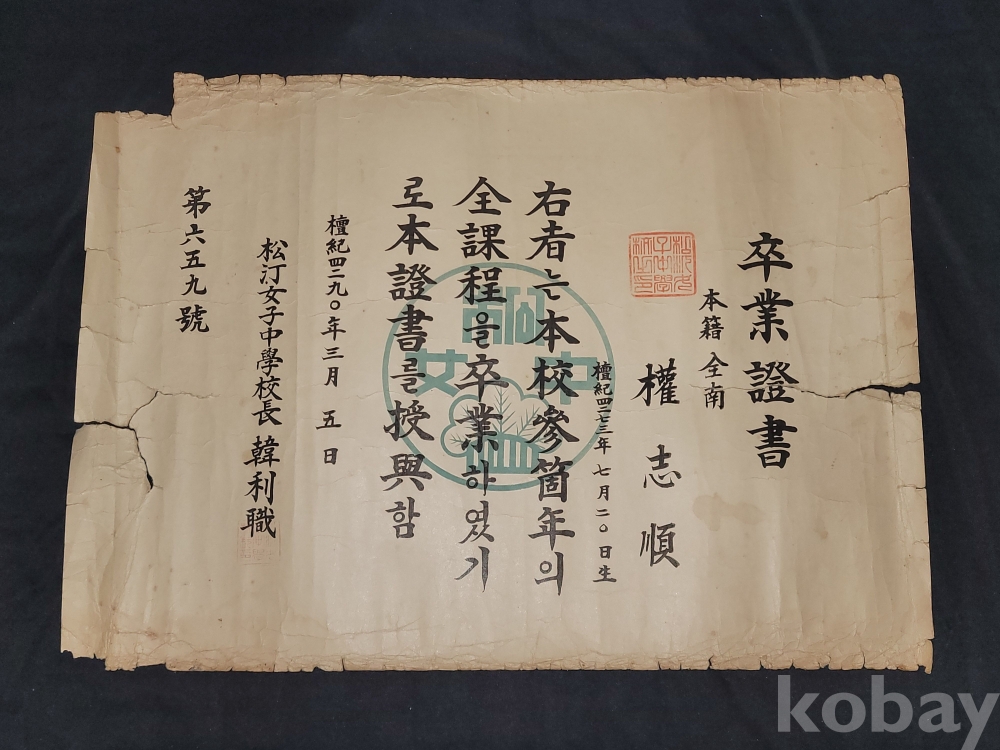 卒業證書
本籍 全南
權志順
檀紀四二七三年七月二〇日生
右者는本校參箇年의
全課程을卒業하였기
로本證書를授與함
檀紀四二九〇年三月 五日
松汀女子中學校長 韓利職
第六五九號
kobay